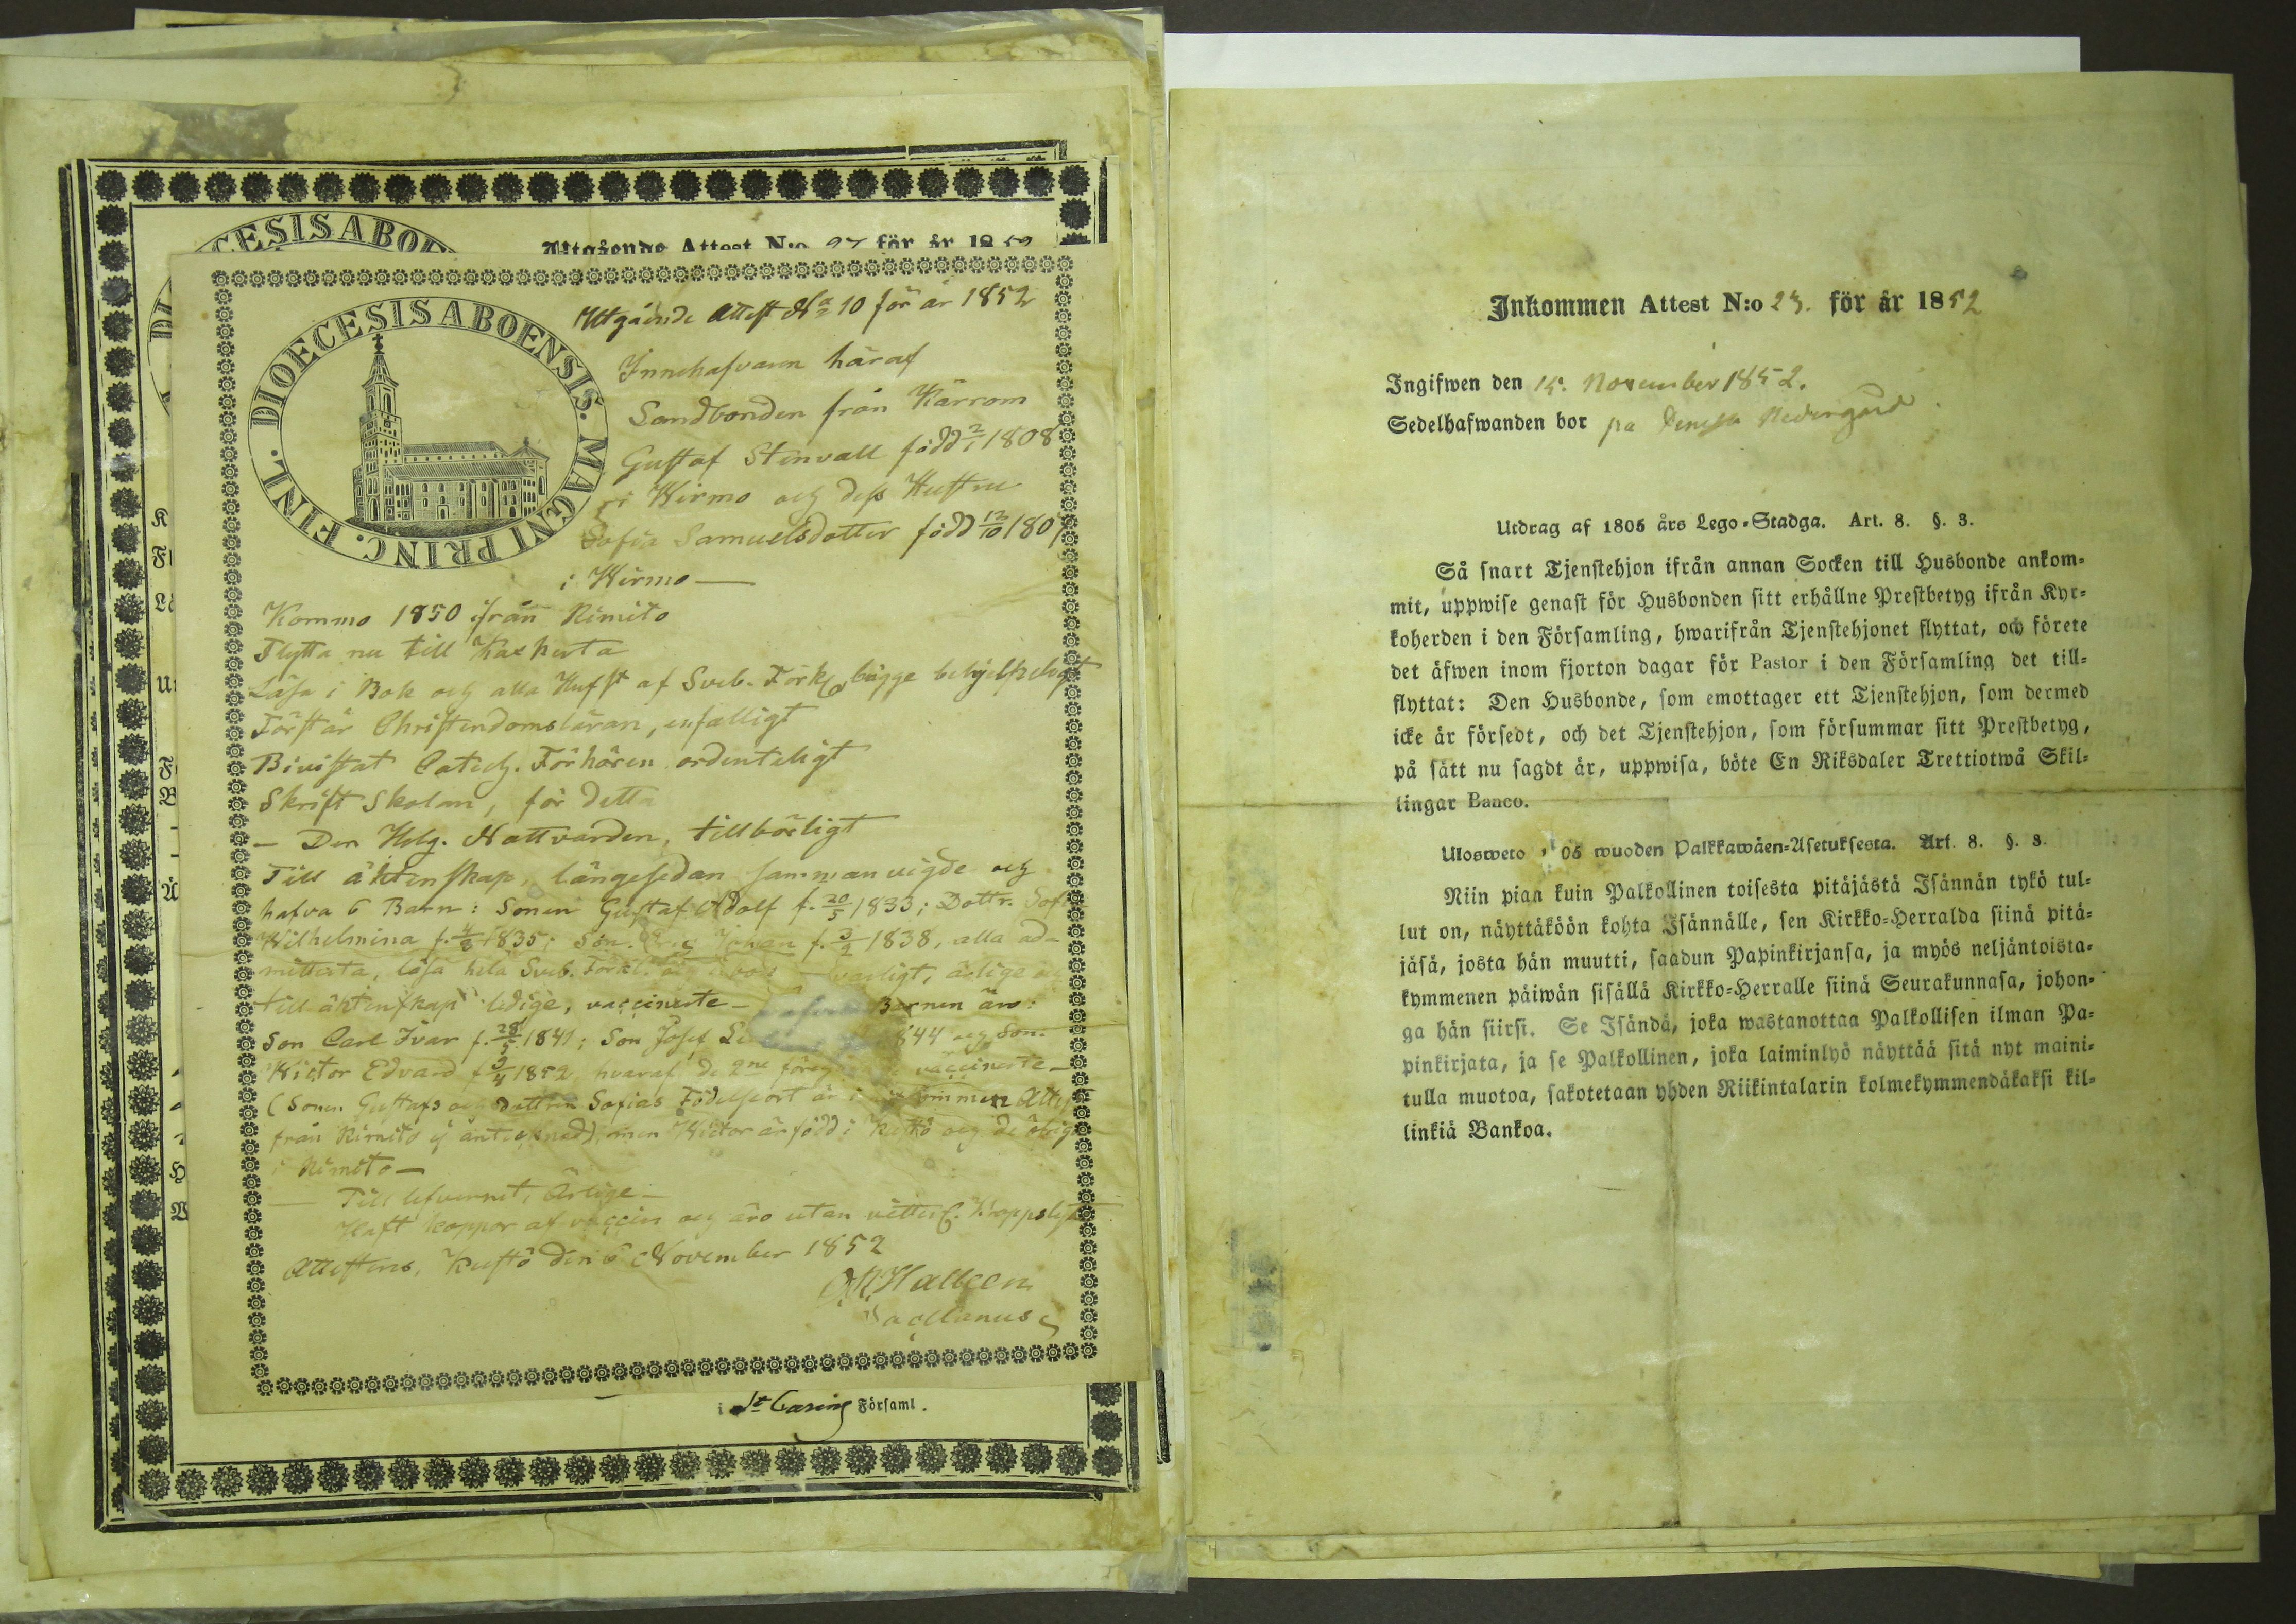 DIOECESIS ABO
Utgående Attest N:o 27 för år 1852
DIOECESIS ABOENSIS. MAGNI PRINC. FINL.
Utgående Attest No 10 för år 1852
Innehafvaren häraf
Landbonden från Kärrom
Gustaf Stenvall född 2/1 1808
i Wirmo och dess Hustru
Sofia Samuelsdotter född 12/10 180
i Wirmo —
Komme 1850 ifrån Rimito
Flytta nu till Kaskerta
Läsa i Bok och alla Hufst af Sveb. Förkl. bägge behjelpeligt
Förstår Christendomsläran, enfalligt
Bivistat Catech. Förhören ordenteligt
Skriftskolan, för detta
— Den Helg. Nattvarden, tillbörligt
Till äktenskap, längesedan sammanvigde och
hafva 6 Barn: Sonen Gustaf Adolf f. 20/5 1833; Dottr. Sof
Wilhelmina f. 4/8 1835; Son. Johan f. 3/2 1838, alla ad-
mitterta läsa hela Sveb. Förkl. ärlige
till äktenskap ledige, vaccinerte — Barnen äro:
Son Carl Ivar f. 28/5 1841; Son Josef 844 och Son.
Wictor Edvard f 3/4 1852 hvaraf de 2ne vaccinerte —
(Sonen Gustafs och dottren Sofias Födelseort är i Attest
från Rimito ej antecknad) men Wictor är född i Kustö och de öfrige
i Rimito —
— Till lefvernet, Ärlige —
Haft koppor af vaccin och äro utan
Attesteras, Kustö den 6 November 1852
Halleen
Sacellanus
i St Carins Församl.
Inkommen Attest N:o 23. för år 1852
Ingifwen den 15. November 1852.
Sedelhafwanden bor på Nedergård
Utdrag af 1805 års Lego-Stadga. Art. 8. §. 3.
Så snart Tjenstehjon ifrån annan Socken till Husbonde ankom-
mit, uppwise genast för Husbonden sitt erhållne Prestbetyg ifrån Kyr-
koherden i den Församling, hwarifrån Tjenstehjonet flyttat, och förete
det äfwen inom fjorton dagar för Pastor i den Församling det till-
flyttat: Den Husbonde, som emottager ett Tjenstehjon, som dermed
icke är försedt, och det Tjenstehjon, som försummar sitt Prestbetyg,
på sätt nu sagdt är, uppwisa, böte En Riksdaler Trettiotwå Skil-
lingar Banco.
Ulosweto 05 wuoden Palkkawäen-Asetuksesta. Art. 8. §. 3.
Niin pian kuin Palkollinen toisesta pitäjästä Isännän tykö tul-
lut on, näyttäköön kohta Isännälle, sen Kirkko-Herralda siinä pitä-
jäsä, josta hän muutti, saadun Papinkirjansa, ja myös neljäntoista-
kymmenen päiwän sisällä Kirkko-Herralle siinä Seurakunnasa, johon-
ga hän siirsi. Se Isändä, joka wastanottaa Palkollisen ilman Pa-
pinkirjata, ja se Palkollinen, joka laiminlyö näyttää sitä nyt maini-
tulla muotoa, sakotetaan yhden Riikintalarin kolmekymmendäkaksi kil-
linkiä Bankoa.